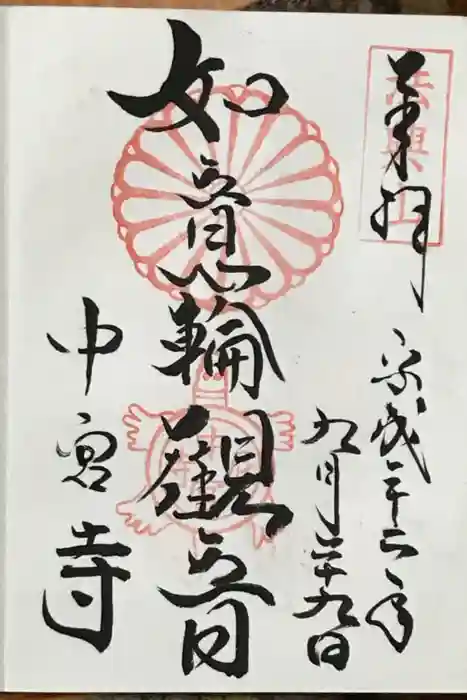 法興山
奉拝
平成二十二年
九月二十九日
如意輪觀音
中宮寺